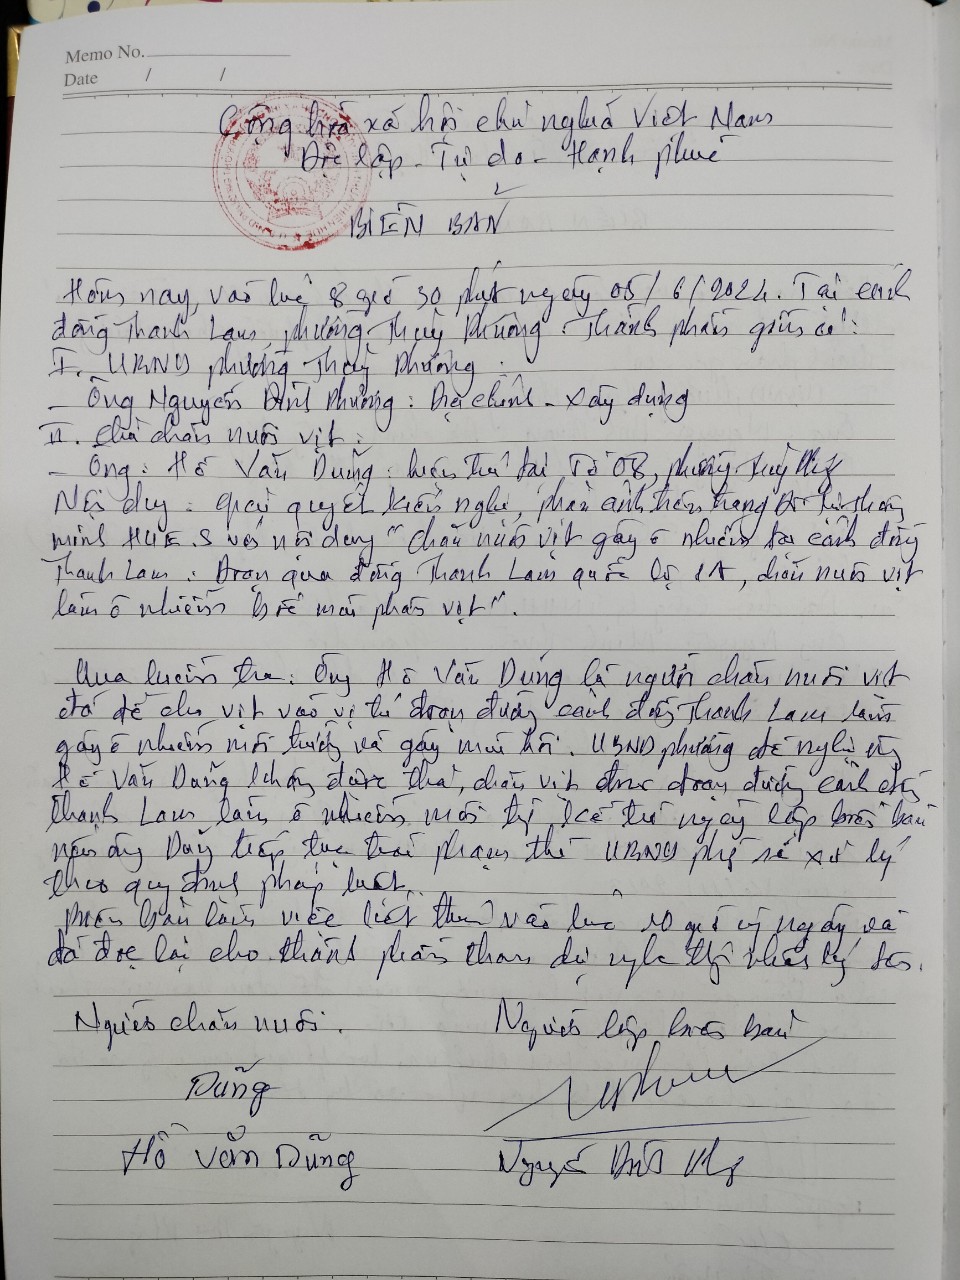 Memo No.
Date / /
Cộng hòa xã hội chủ nghĩa Việt Nam
Độc lập - Tự do - Hạnh phúc
BIÊN BẢN
Hôm nay, vào lúc 8 giờ 30 phút ngày 05/6/2024. Tại cánh
đồng Thanh Lam, phường Thủy Phương. Thành phần gồm có:
I. UBND phường Thủy Phương:
- Ông Nguyễn Đình Phương: Địa chính - Xây dựng
II. Chủ chăn nuôi vịt:
- Ông: Hồ Văn Dũng: hiện trú tại Tổ 08, phường Thủy Phương
Nội dung: Giải quyết kiến nghị, phản ánh hiện trạng Đô thị thông
minh HUE.S với nội dung "chăn nuôi vịt gây ô nhiễm tại cánh đồng
Thanh Lam: Đoạn qua đồng Thanh Lam quốc lộ 1A, chăn nuôi vịt
làm ô nhiễm bốc mùi phân vịt".
Qua kiểm tra: Ông Hồ Văn Dũng là người chăn nuôi vịt
đã để cho vịt vào vị trí đoạn đường cánh đồng Thanh Lam làm
gây ô nhiễm môi trường và gây mùi hôi. UBND phường đề nghị ông
Hồ Văn Dũng không được thả, chăn vịt đoạn đường cánh đồng
Thanh Lam làm ô nhiễm môi trường kể từ ngày lập biên bản
nếu ông Dũng tiếp tục phạm thì UBND phường sẽ xử lý
theo quy định pháp luật.
Biên bản làm việc kết thúc vào lúc 10 giờ cùng ngày và
đã đọc lại cho thành phần tham dự nghe thống nhất ký tên.
Người chăn nuôi. Người lập biên bản
Dũng
Hồ Văn Dũng Nguyễn Đình Phương